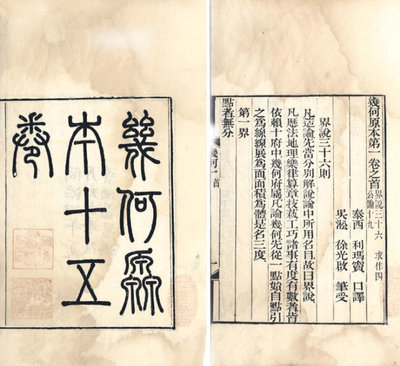 幾何原
本十五
卷
幾何原本第一卷之首 界說三十六 求作四
公論十九
泰西 利瑪竇 口譯
吳淞 徐光啟 筆受
界說三十六則
凡造論先當分別解說論中所用名目故曰界說
凡歷法地理樂律算章技藝工巧諸事有度有數者皆
依賴十府中幾何府屬凡論幾何先從一點始自點引
之爲線線展爲面面積爲體是名三度
第一界
點者無分
幾何一 首